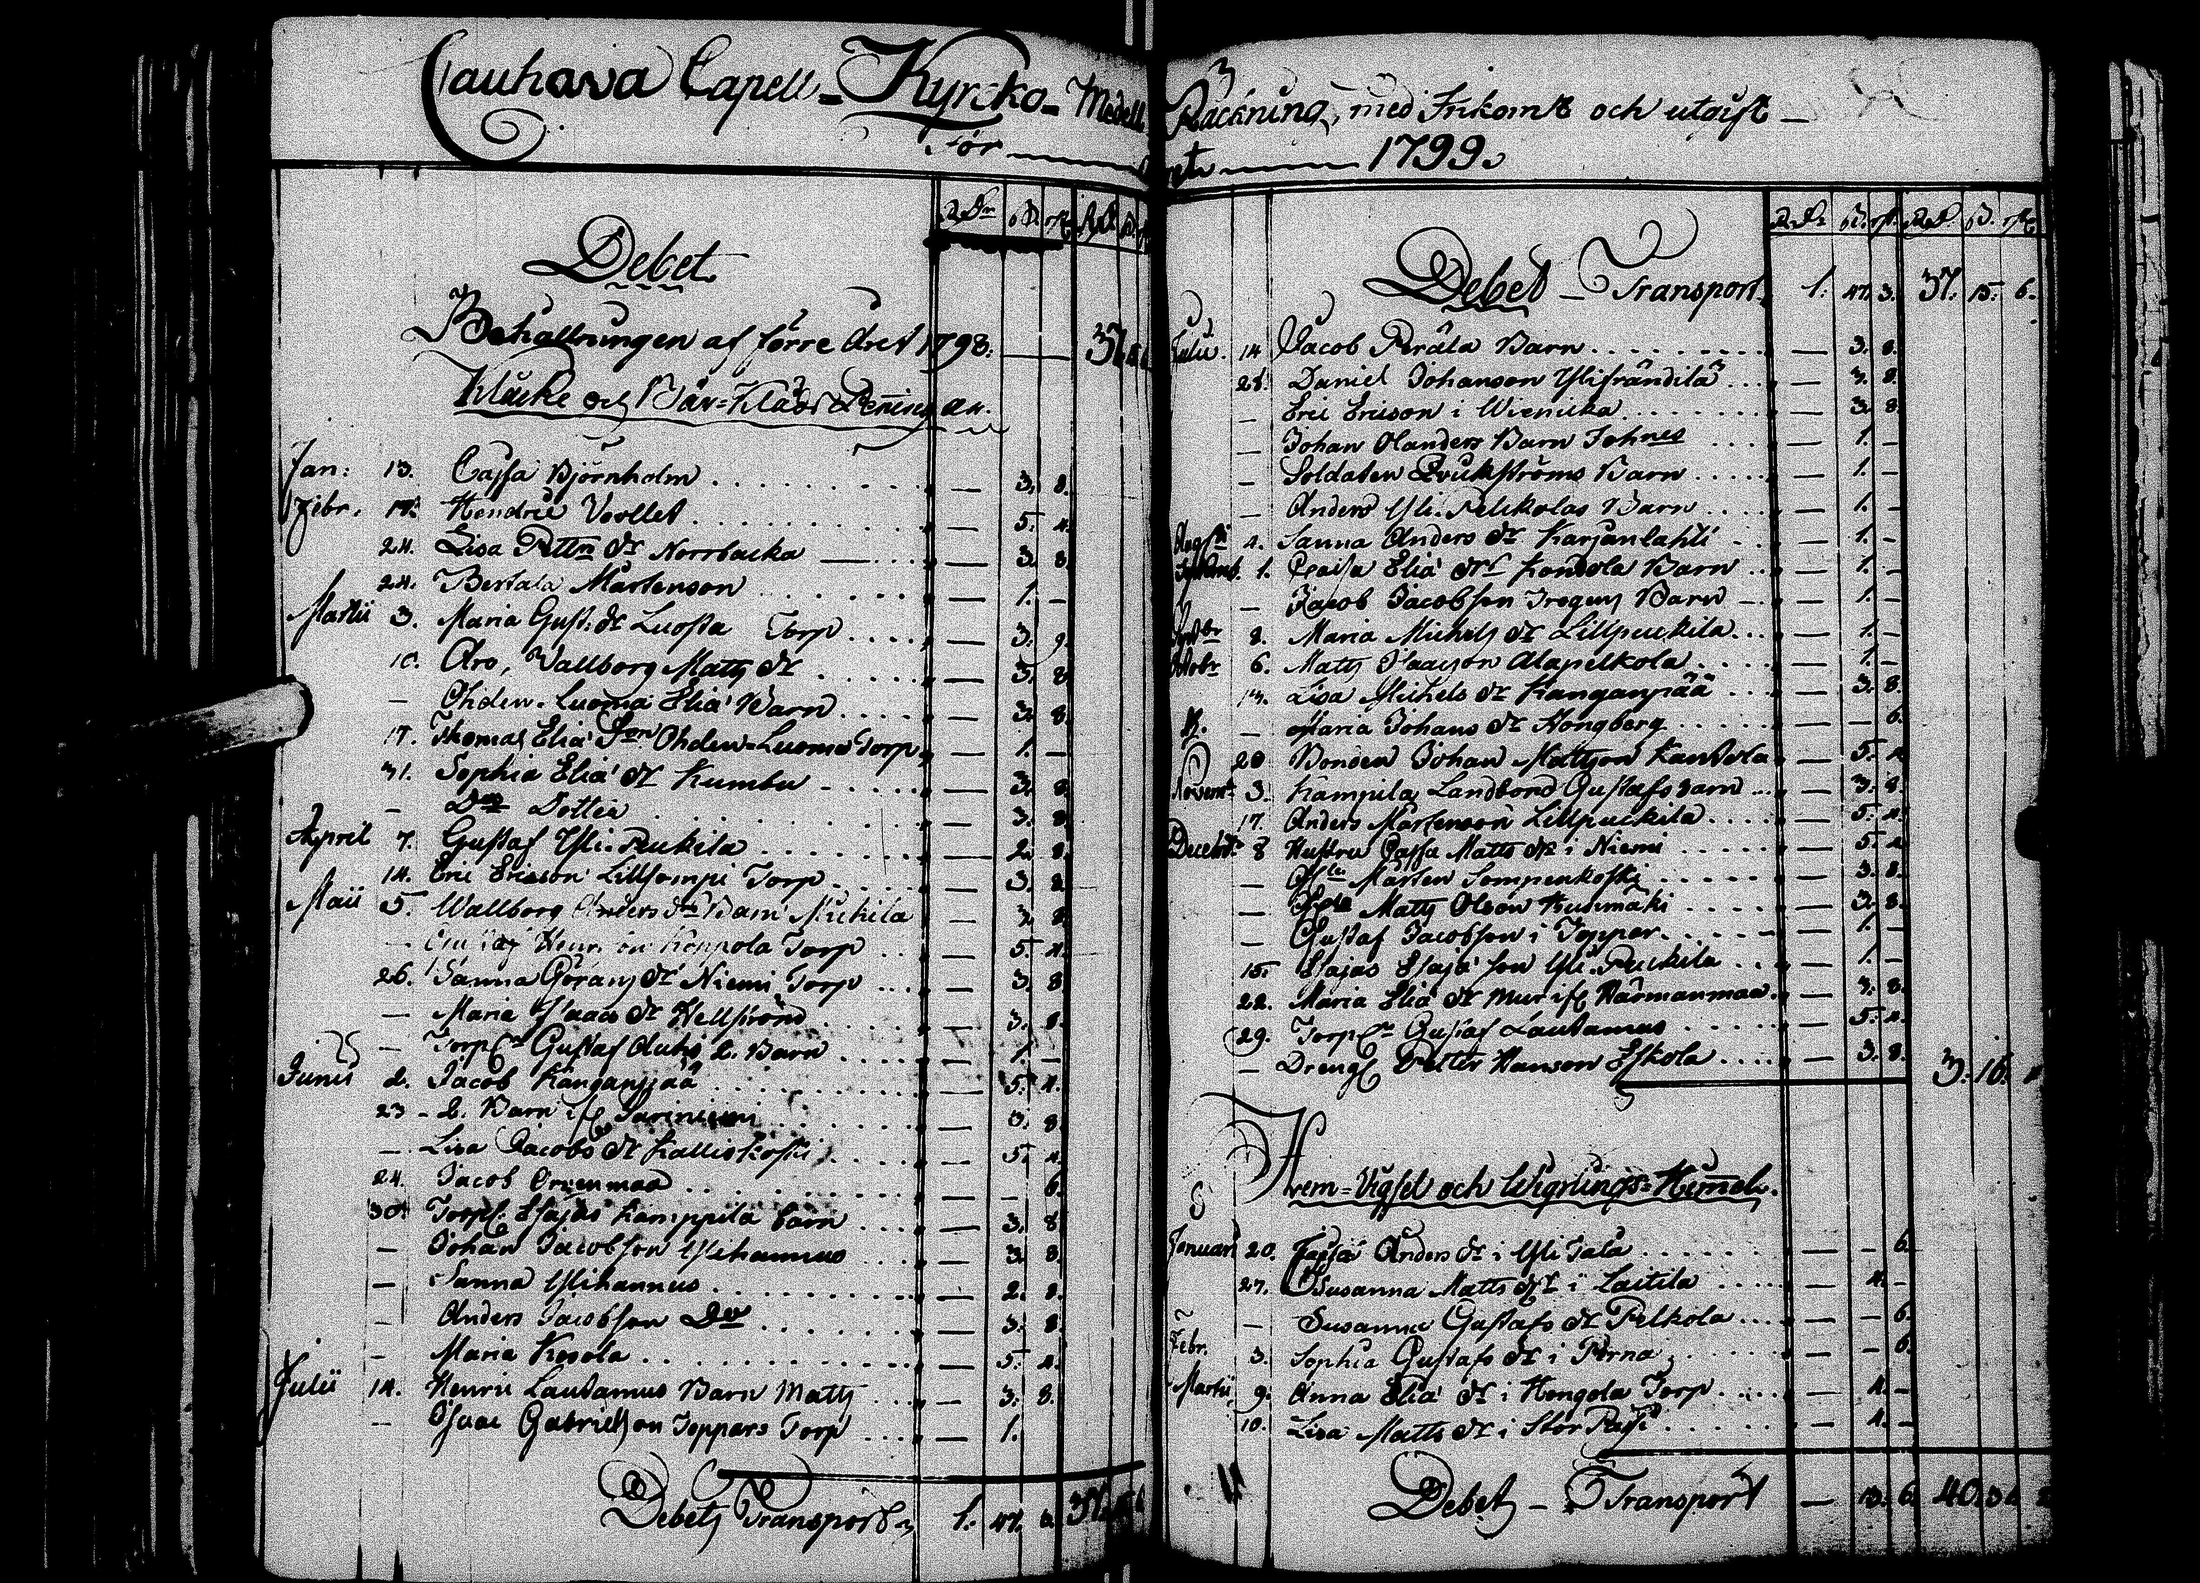 Cauhava Capell-Kyrcko-Medell Räckning, med Inkomst och utgift
för året 1799.
Debet
Rd. s. r. Rd. s. r.
Behållningen af förre året 1798. — 37. 15. 6.
Klåcke och Bår-Kläds Peningar.
Jan: 13. Cajsa Björnholm — 3. 8.
Febr. 17. Hendric Vvollet — 5. 4.
24. Lisa Petters dr Norrbacka — 3. 8.
24. Bertata Mårtenson — 1. —
Martii 3. Maria Gust. dr Luopa Torp — 3. 9.
10. Aro, Wallborg Matts dr — 3. 8.
— Ohden-Luoma Eliæ Barn — 3. 8.
17. Thomas Eliæ Son Ohden-Luoma Torp — 1. —
31. Sophia Eliæ dr Kumbu — 3. 8.
— Do Dotter — 3. 8.
April 7. Gustaf Yli-Pukila — 2. 8.
14. Eric Ericson Lillsompi Torp — 3. 8.
Maii 5. Wallborg Anders dr Barn Pukila — 3. 8.
— Koppola Torp — 5. 4.
26. Sanna Görans dr Niemi Torp — 3. 8.
— Maria Isaacs dr Hellströnd — 3. 8.
— Torp. Gustaf Auhos 2. Barn — 1. —
Junii 2. Jacob Kanganpää — 5. 4.
23 — 2. Barn if Sariniemi — 3. 8.
— Lisa Jacobs dr Kalliokoski — 5. 4.
24. Jacob Orrenmaa — — 6.
30. Torp. Esajas Kamppila barn — 3. 8.
— Johan Jacobson Ylihannus — 3. 8.
— Sanna Ylihannus — 2. 8.
— Anders Jacobson Do — 3. 8.
— Maria Kesola — 5. 4.
Julii 14. Henric Lautamus Barn Matts — 3. 8.
— Isaac Gabrielson Toppars Torp — 1.
Debets Transport 1. 47. 3. 37. 15. 6.
Rd. s. r. Rd. s. r.
Debet — Transport 1. 47. 3. 37. 15. 6.
Julii. 14 Jacob Peräla Barn — 3. 8.
28. Daniel Johanson Ylifrändilä — 3. 8.
— Eric Ericson i Wienicka — 3. 8.
— Johan Olanders Barn Johnes — 1. —
— Soldaten Qvickströms Barn — 1. —
— Anders Yli-Pelkolas Barn — 1. —
Augsti 4. Sanna Anders dr Karjanlahti — 1. —
1. Cajsa Eliæ dr Kondola Barn — 1. —
— Jacob Jacobson Tregus Barn — 1. —
8. Maria Michels dr Lillpuckila — 1. —
Octobr 6. Matts Isaacson Alapelkola — 1. —
13. Lisa Michels dr Kanganpää — 3. 8.
— Maria Johans dr Hongberg — — 6.
20 Bonden Johan Mattson Kantola — 5. 4
Novemb 3. Kampila Landbond Gustafs barn — 3. 8.
17. Anders Mårtenson Lillpuckila — 5. 4
Decembr 8 Hustru Cajsa Matts dr i Niemi — 5. 4
— Mårten Sompenkoski — 3. 8.
— Matts Olson Kusimäki — 3. 8.
— Gustaf Jacobson i Toppar — 1. —
15. Esajas Esajæ son Yli-Puckila — 1. —
22. Maria Eliæ dr Mur if Härmänmaa — 3. 8.
29. Torp. Gustaf Lautamus — 5. 4.
— Dreng Petter Hanson Eskola — 3. 8. 3. 16.
Brem-Vigsel och Wignings-Himel.
Januari 20. Cajsa Anders dr i Yli Tala — — 6.
27. Susanna Matts dr i Laitila — 4. —
— Susanna Gustafs dr Pelkola — — 6.
Febr. 3. Sophia Gustafs dr i Perna — — 6.
Martii 9. Anna Eliæ dr i Hongola Torp — 4. —
10. Lisa Matts dr i Stor Passi — 4. —
Debets — Transport — 13. 6. 40.